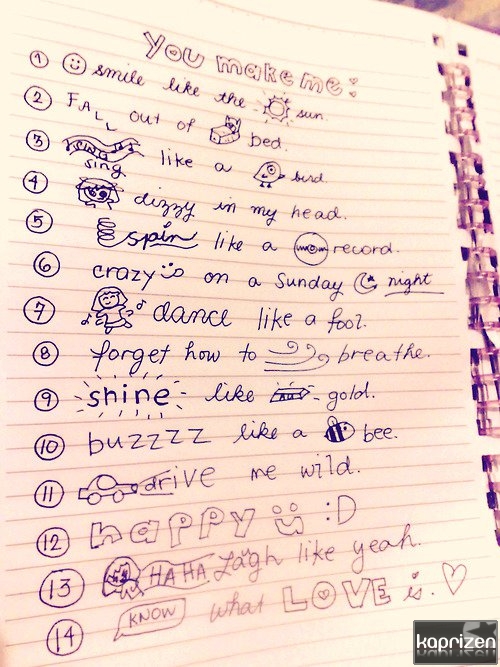 You make me:
1 smile like the sun.
2 FALL out of bed.
3 sing like a bird.
4 dizzy in my head.
5 spin like a record.
6 crazy on a Sunday night
7 dance like a fool.
8 forget how to breathe.
9 shine like gold.
10 buzzzz like a bee.
11 drive me wild.
12 happy :D
13 HA HA Laugh like yeah.
14 KNOW what LOVE is.
kaprizen